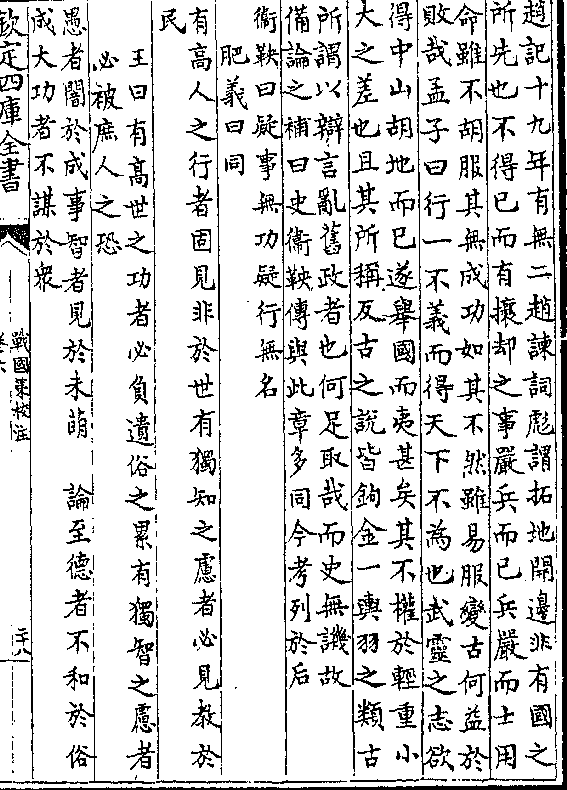 趙記十九年有無二趙諫詞彪謂拓地開邊非有國之
所先也不得已而有攘却之事嚴兵而已兵嚴而士用
命雖不胡服其無成功如其不然雖易服變古何益於
敗哉孟子曰行一不義而得天下不為也武靈之志欲
得中山胡地而已遂舉國而夷甚矣其不權於輕重小
大之差也且其所稱反古之說皆鉤金一輿羽之類古
所謂以辯言亂舊政者也何足取哉而史無譏故
備論之補曰史衛鞅傳與此章多同今考列於后
衛鞅曰疑事無功疑行無名
肥義曰同
有高人之行者固見非於世有獨知之慮者必見敖於
民
王曰有高世之功者必負遺俗之累有獨智之慮者
必被庶人之恐
愚者闇於成事智者見於未萌 論至德者不和於俗
成大功者不謀於衆
欽定四庫全書
戰國策校注
卷六
二十八